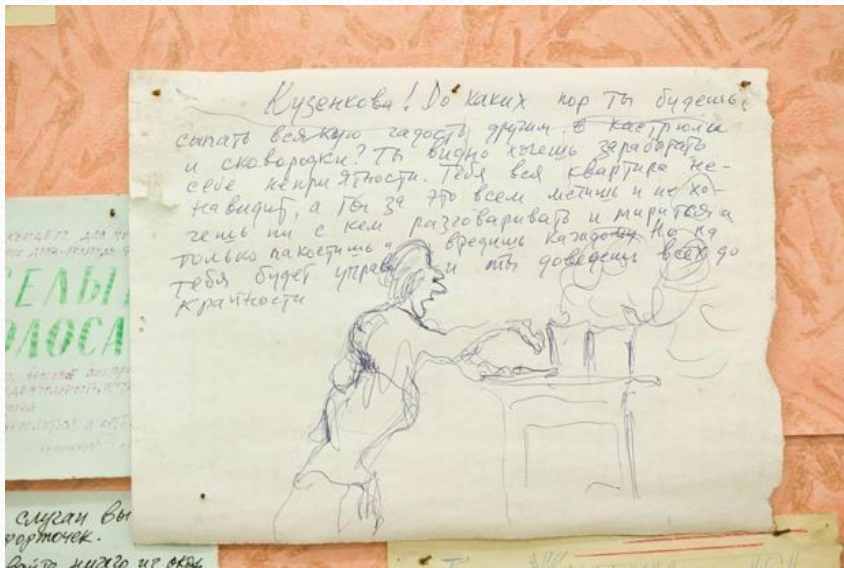 Кузенкова! До каких пор ты будешь
сыпать всякую гадость другим в кастрюли
и сковородки? Ты видно хочешь заработать
себе неприятности. Тебя вся квартира не-
навидит, а ты за это всем мстишь и не хо-
чешь ни с кем разговаривать и мириться а
только пакостишь и вредишь каждому Но на
тебя будет управа и ты доведешь всех до
крайности
ОЛОСА
случаи вы
форточек.
ничего из окон